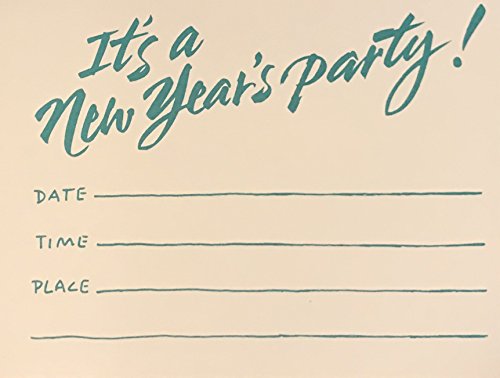 It's a
New Year's Party!
DATE
TIME
PLACE